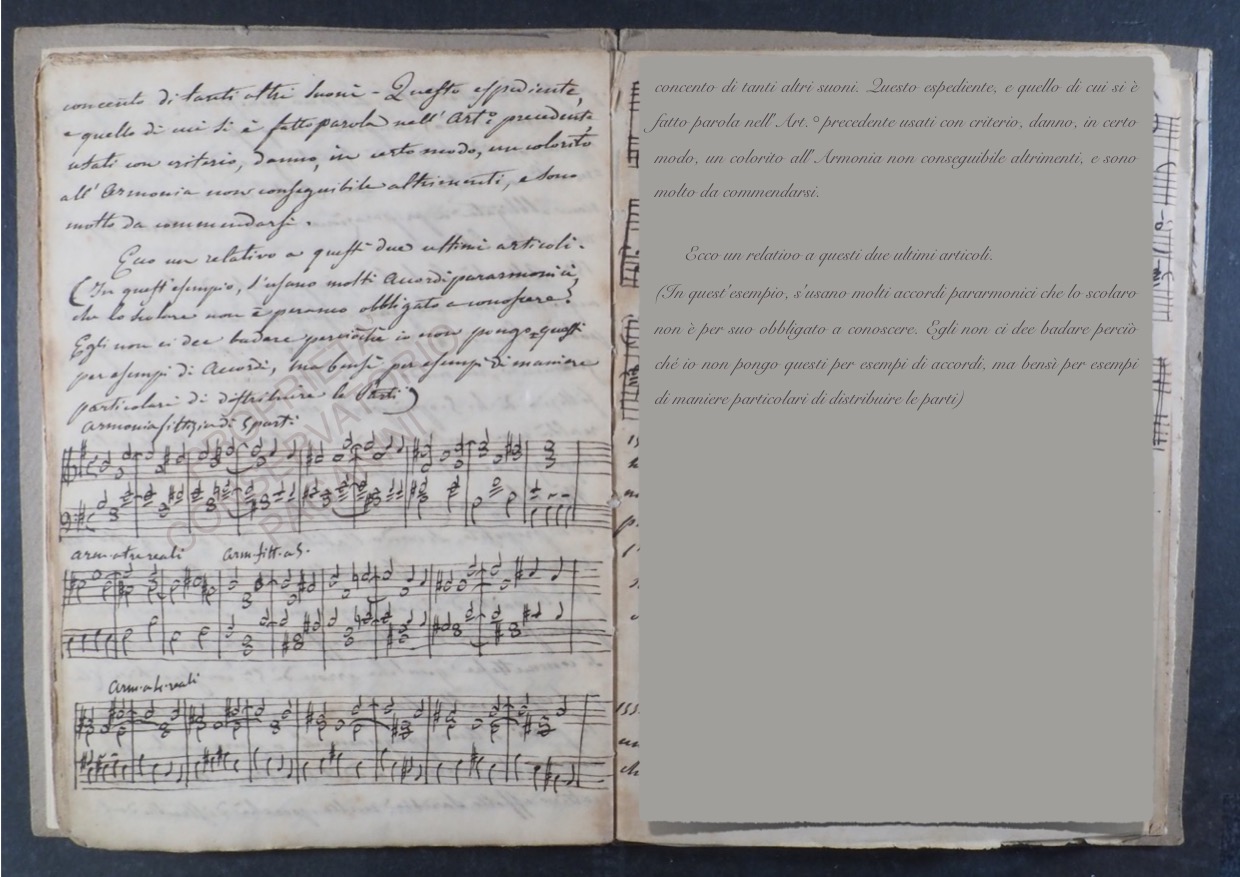 concento di tanti altri suoni - Questo espediente,
e quello di cui si è fatto parola nell'Art.° precedente
usati con criterio, danno, in certo modo, un colorito
all'Armonia non conseguibile altrimenti, e sono
molto da commendarsi.
Ecco un relativo a questi due ultimi articoli.
(In quest'esempio, s'usano molti accordi pararmonici,
che lo scolare non è peranco obbligato a conoscere.
Egli non ci dee badare perciocchè io non pongo questi
per esempi di Accordi, ma bensì per esempi di maniere
particolari di distribuire le Parti)
Armonia fittizia di 5 parti.
arm. a tre reali
Arm. fitt. a 5.
Arm. a 4. reali
PROPRIETÀ
CONSERVATORIO
PAGANINI
concento di tanti altri suoni. Questo espediente, e quello di cui si è
fatto parola nell'Art.° precedente usati con criterio, danno, in certo
modo, un colorito all'Armonia non conseguibile altrimenti, e sono
molto da commendarsi.
Ecco un relativo a questi due ultimi articoli.
(In quest'esempio, s'usano molti accordi pararmonici che lo scolaro
non è per suo obbligato a conoscere. Egli non ci dee badare perciò
ché io non pongo questi per esempi di accordi, ma bensì per esempi
di maniere particolari di distribuire le parti)